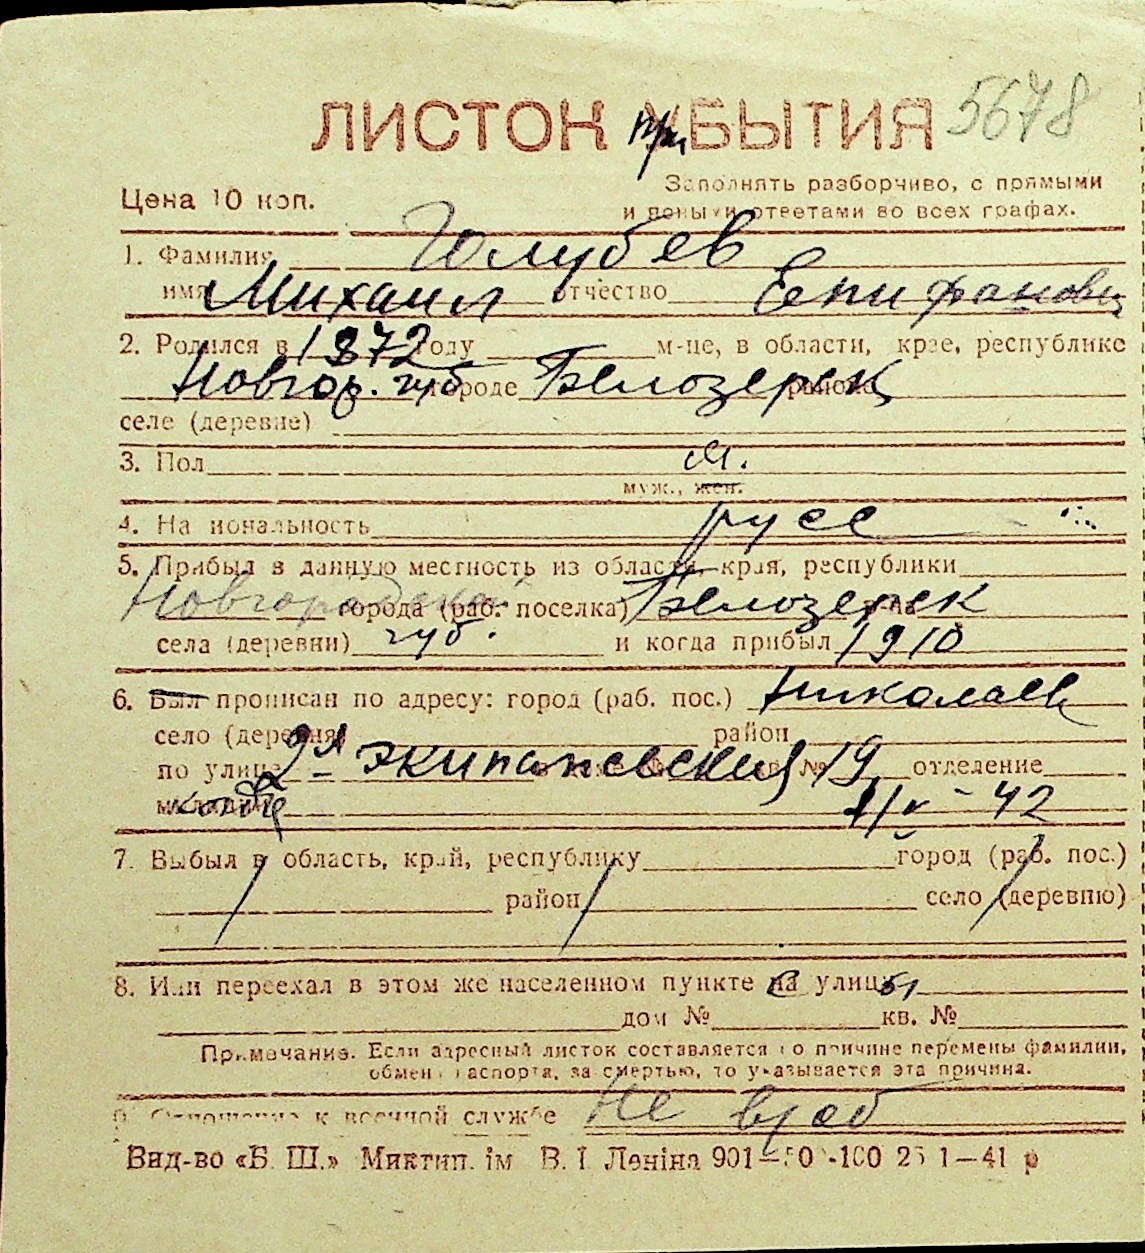 ЛИСТОК прибЫТИЯ 5678
Цена 10 коп.
Заполнять разборчиво, с прямыми
и ясными ответами во всех графах.
1. Фамилия Голубев
имя Михаил отчество Епифанович
2. Родился в 1872 году м-це, в области, крае, республике
Новгор. губ городе Белозерск районе
селе (деревне)
3. Пол м.
муж., жен.
4. Национальность русс
5. Прибыл в данную местность из области, края, республики
Новгородской города (раб. поселка) Белозерск
села (деревни) губ. и когда прибыл 1910
6. Был прописан по адресу: город (раб. пос.) Николаев
село (деревня) район
по улице 2я Экипажеская 19 отделение
милиции 1/V-42
7. Выбыл в область, край, республику город (раб. пос.)
район село (деревню)
8. Или переехал в этом же населенном пункте с улицы
дом № кв. №
Примечание. Если адресный листок составляется по причине перемены фамилии,
обмена паспорта, за смертью, то указывается эта причина.
9. Отношение к военной службе не
Вид-во «Б. Ш.» Миктип. ім В. І. Леніна 901